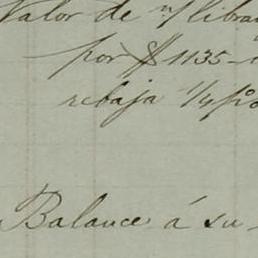 Valor de n/ libra
por $1135-
rebaja 1/4 p%
Balance á su